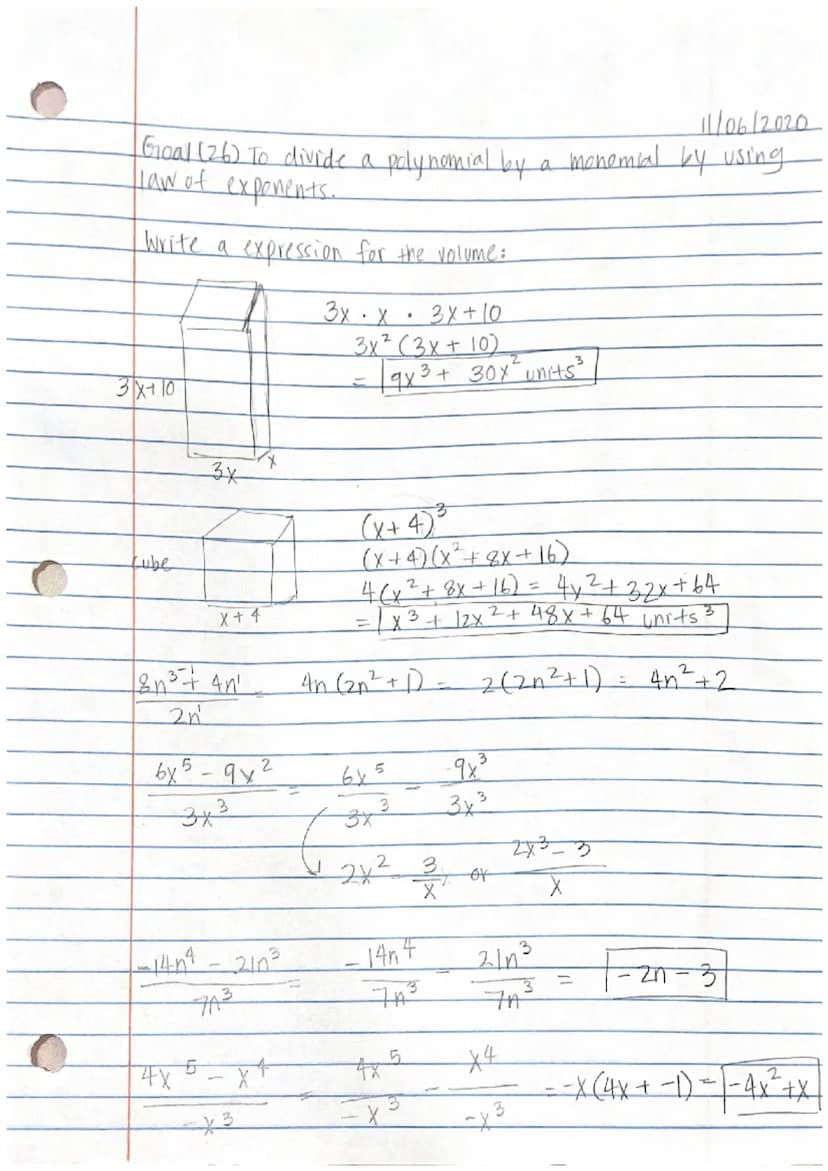 11/06/2020
Goal (26) To divide a polynomial by a monomial by using
law of exponents.
Write a expression for the volume:
3x · x · 3x+10
3x² (3x + 10)
= 9x³ + 30x² units³
3x+10
3x
x
cube
x+4
(x+4)³
(x+4)(x²+8x+16)
4(x²+8x+16) = 4x²+32x+64
= x³ + 12x² + 48x + 64 units³
8n³ + 4n¹ / 2n¹ = 4n(2n²+1) = 2(2n²+1) = 4n²+2
6x⁵ - 9x² / 3x³ = 6x⁵ / 3x³ - 9x³ / 3x³
2x² - 3/x, or 2x³ - 3 / x
-14n⁴ - 21n³ / 7n³ = -14n⁴ / 7n³ - 21n³ / 7n³ = -2n - 3
4x⁵ - x⁴ / -x³ = 4x⁵ / -x³ - x⁴ / -x³ = -x(4x + -1) = -4x²+x